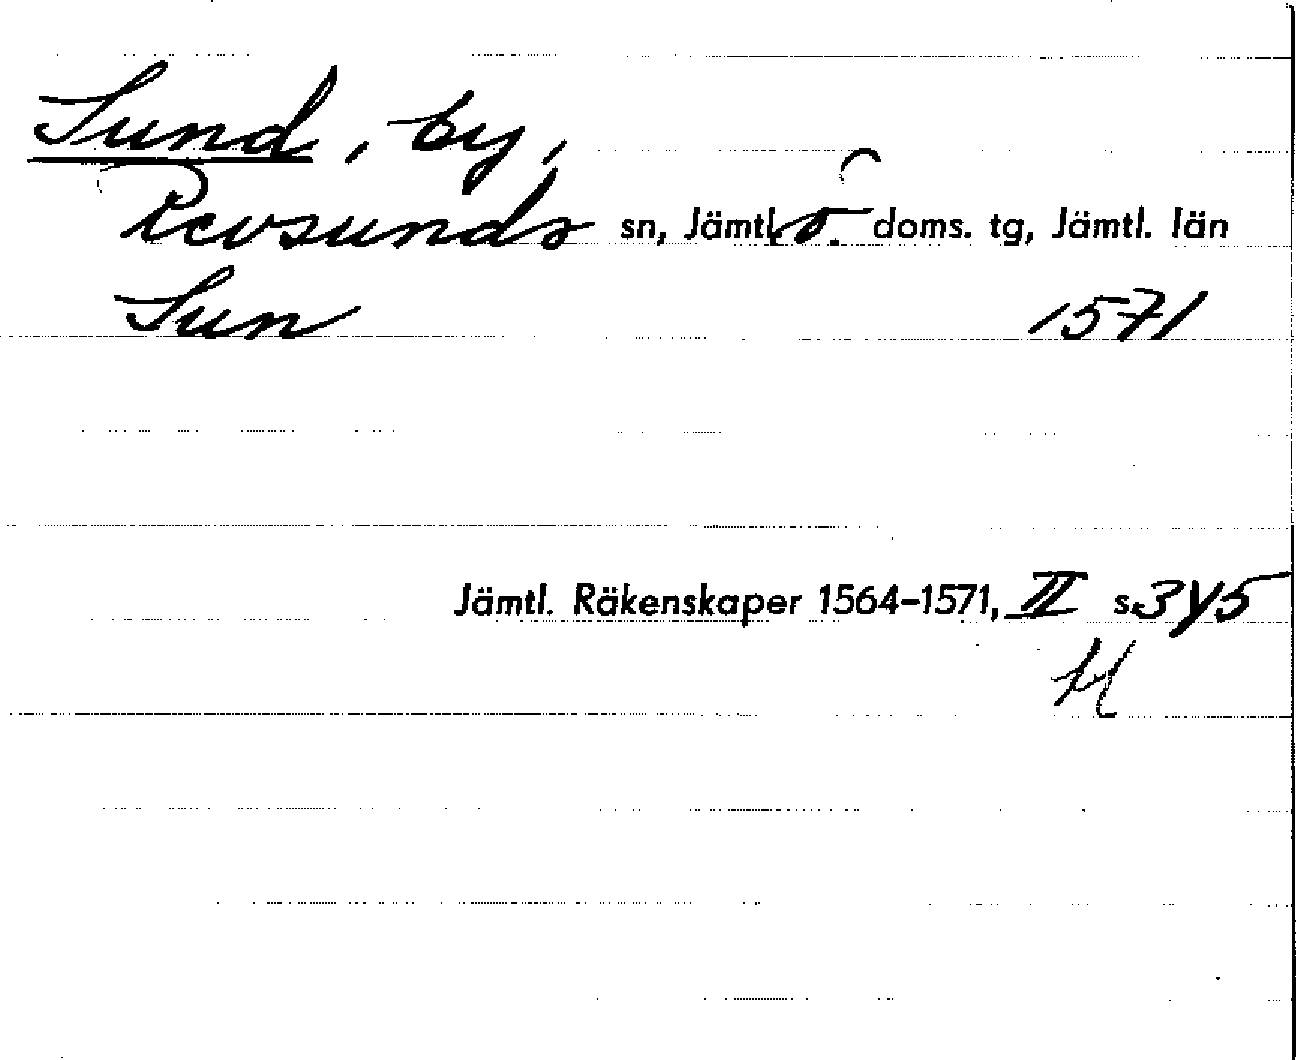 Sund, by,
Revsunds sn, Jämtl. ö. doms. tg, Jämtl. län
Sun 1571
Jämtl. Räkenskaper 1564-1571, II s 345